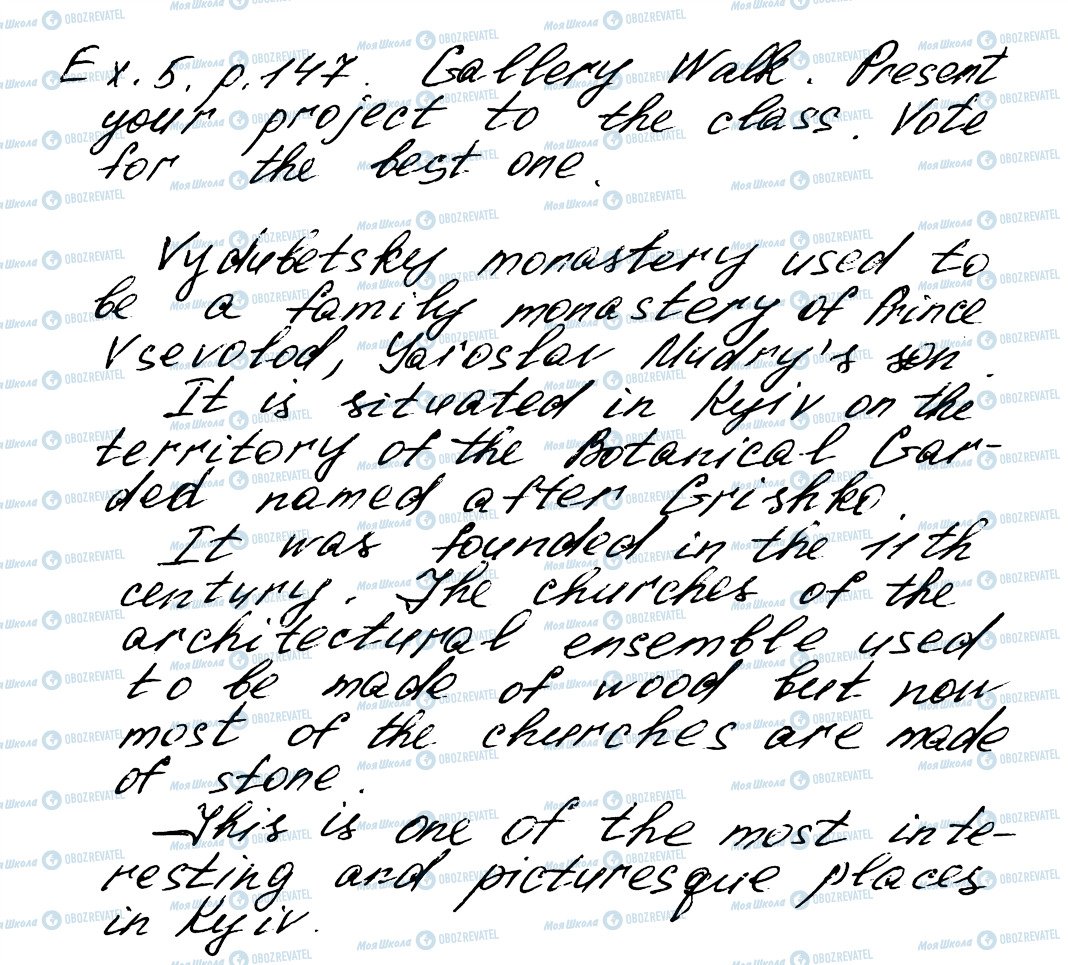 Ex. 5. p. 147. Gallery Walk. Present
your project to the class. Vote
for the best one.
Vydubetsky monastery used to
be a family monastery of Prince
Vsevolod, Yaroslav Mudry's son.
It is situated in Kyiv on the
territory of the Botanical Gar-
ded named after Grishko.
It was founded in the 11th
century. The churches of the
architectural ensemble used
to be made of wood but now
most of the churches are made
of stone.
This is one of the most inte-
resting and picturesque places
in Kyiv.
Моя Школа OBOZREVATEL